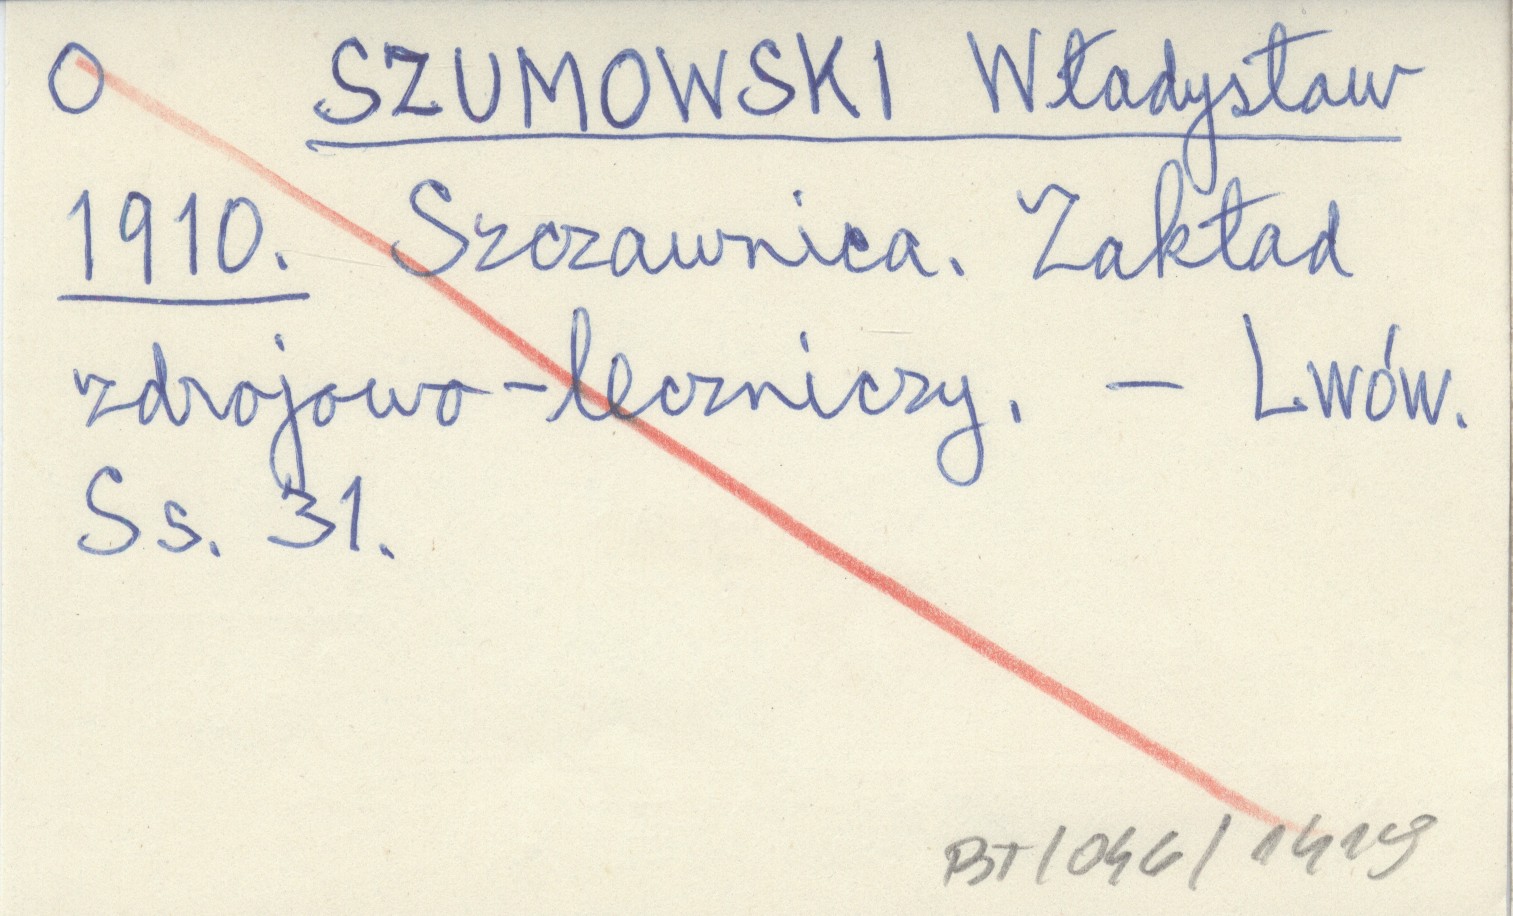 O SZUMOWSKI Władysław
1910. Szczawnica. Zakład
zdrojowo-leczniczy. – Lwów.
Ss. 31.
BT/046/1419